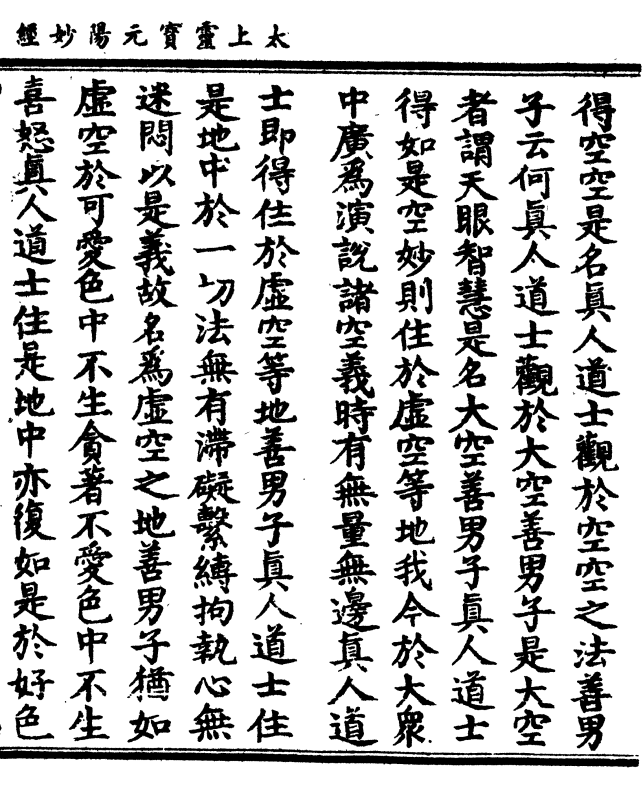 太上靈寶元陽妙經
得空空是名眞人道士觀於空空之法善男
子云何眞人道士觀於大空善男子是大空
者謂天眼智慧是名大空善男子眞人道士
得如是空妙則住於虛空等地我今於大衆
中廣爲演說諸空義時有無量無邊眞人道
士即得住於虛空等地善男子眞人道士住
是地中於一切法無有滯礙繫縛拘執心無
迷悶以是義故名爲虛空之地善男子猶如
虛空於可愛色中不生貪著不愛色中不生
喜怒眞人道士住是地中亦復如是於好色